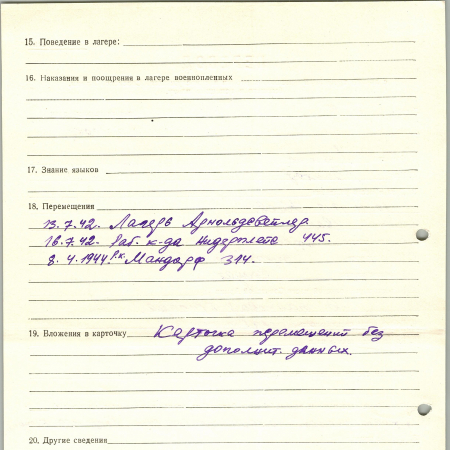 15. Поведение в лагере:
16. Наказания и поощрения в лагере военнопленных
17. Знание языков
18. Перемещения
13.7.42. Лагерь Арнольдсвейлер
16.7.42. Раб. к-да 445.
8.4.1944. Р.к. Мандорф 314.
19. Вложения в карточку Карточка перемещений без
дополнит. данных.
20. Другие сведения